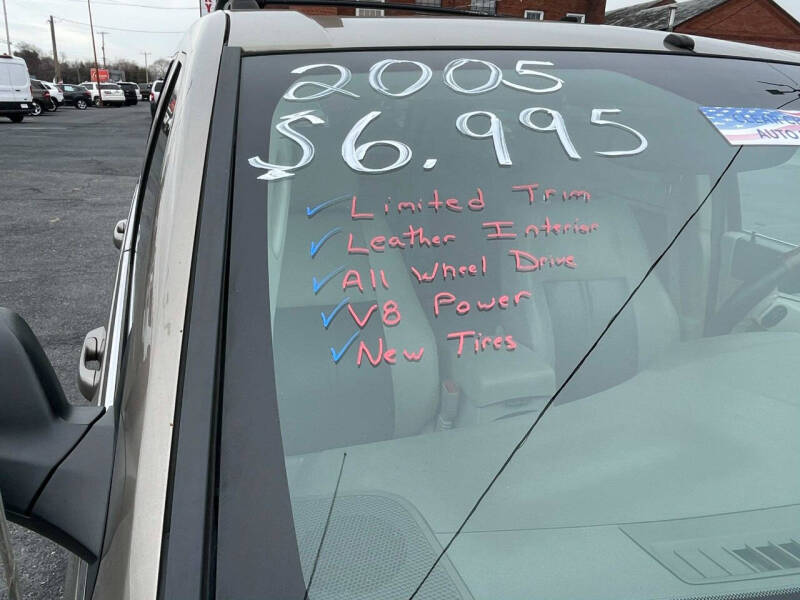 2005
$6,995
✓ Limited Trim
✓ Leather Interior
✓ All Wheel Drive
✓ V8 Power
✓ New Tires
AUTO